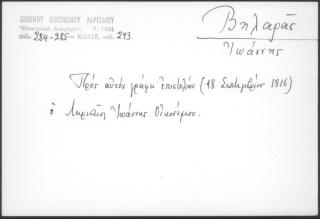 ΙΩΑΝΝΟΥ ΟΙΚΟΝΟΜΟΥ ΛΑΡΙΣΑΙΟΥ
σελ. 284-285= ΚΩΔΙΞ, σελ. 293
Βηλαρᾶς
Ἰωάννης
Πρὸς αὐτὸν γράφει ἐπιστολὴν (18 Σεπτεμβρίου 1816)
ὁ Λαρισαῖος Ἰωάννης Οἰκονόμου.